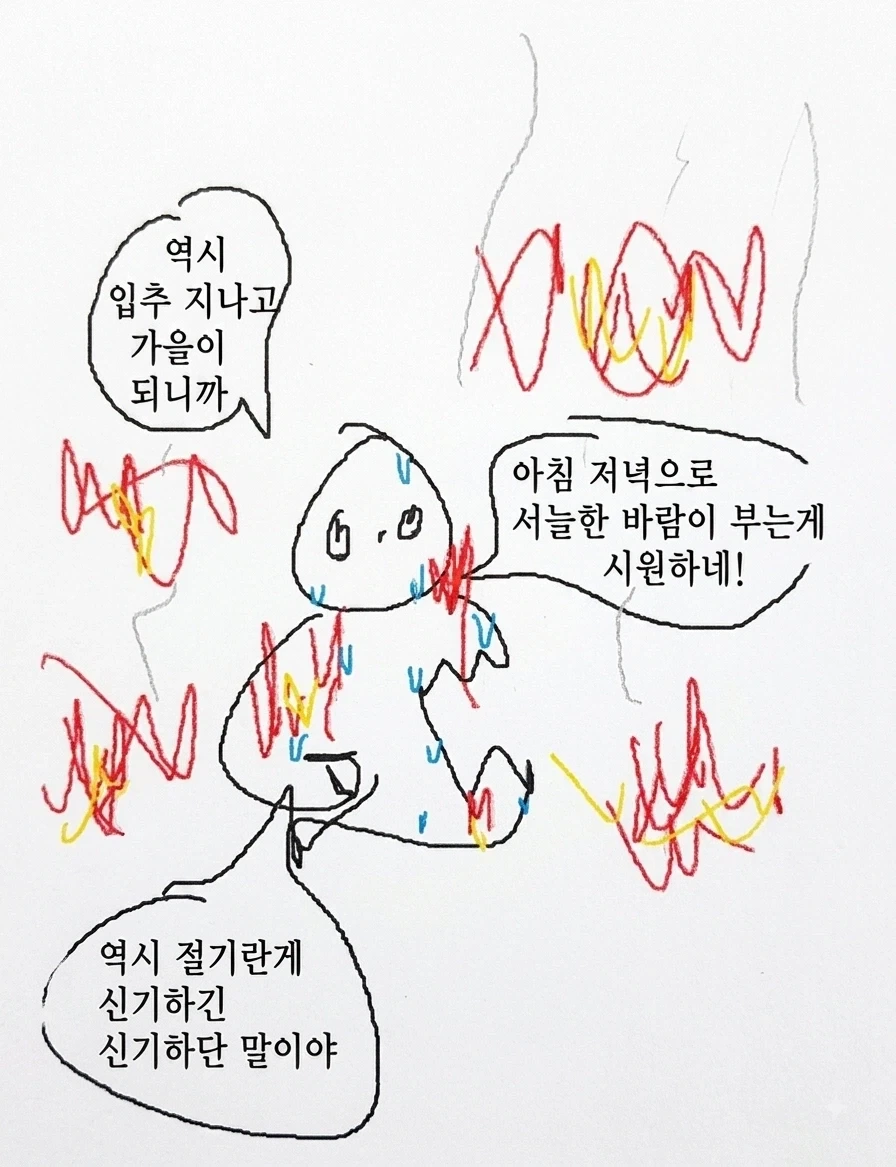 역시
입추 지나고
가을이
되니까
아침 저녁으로
서늘한 바람이 부는게
시원하네!
역시 절기란게
신기하긴
신기하단 말이야